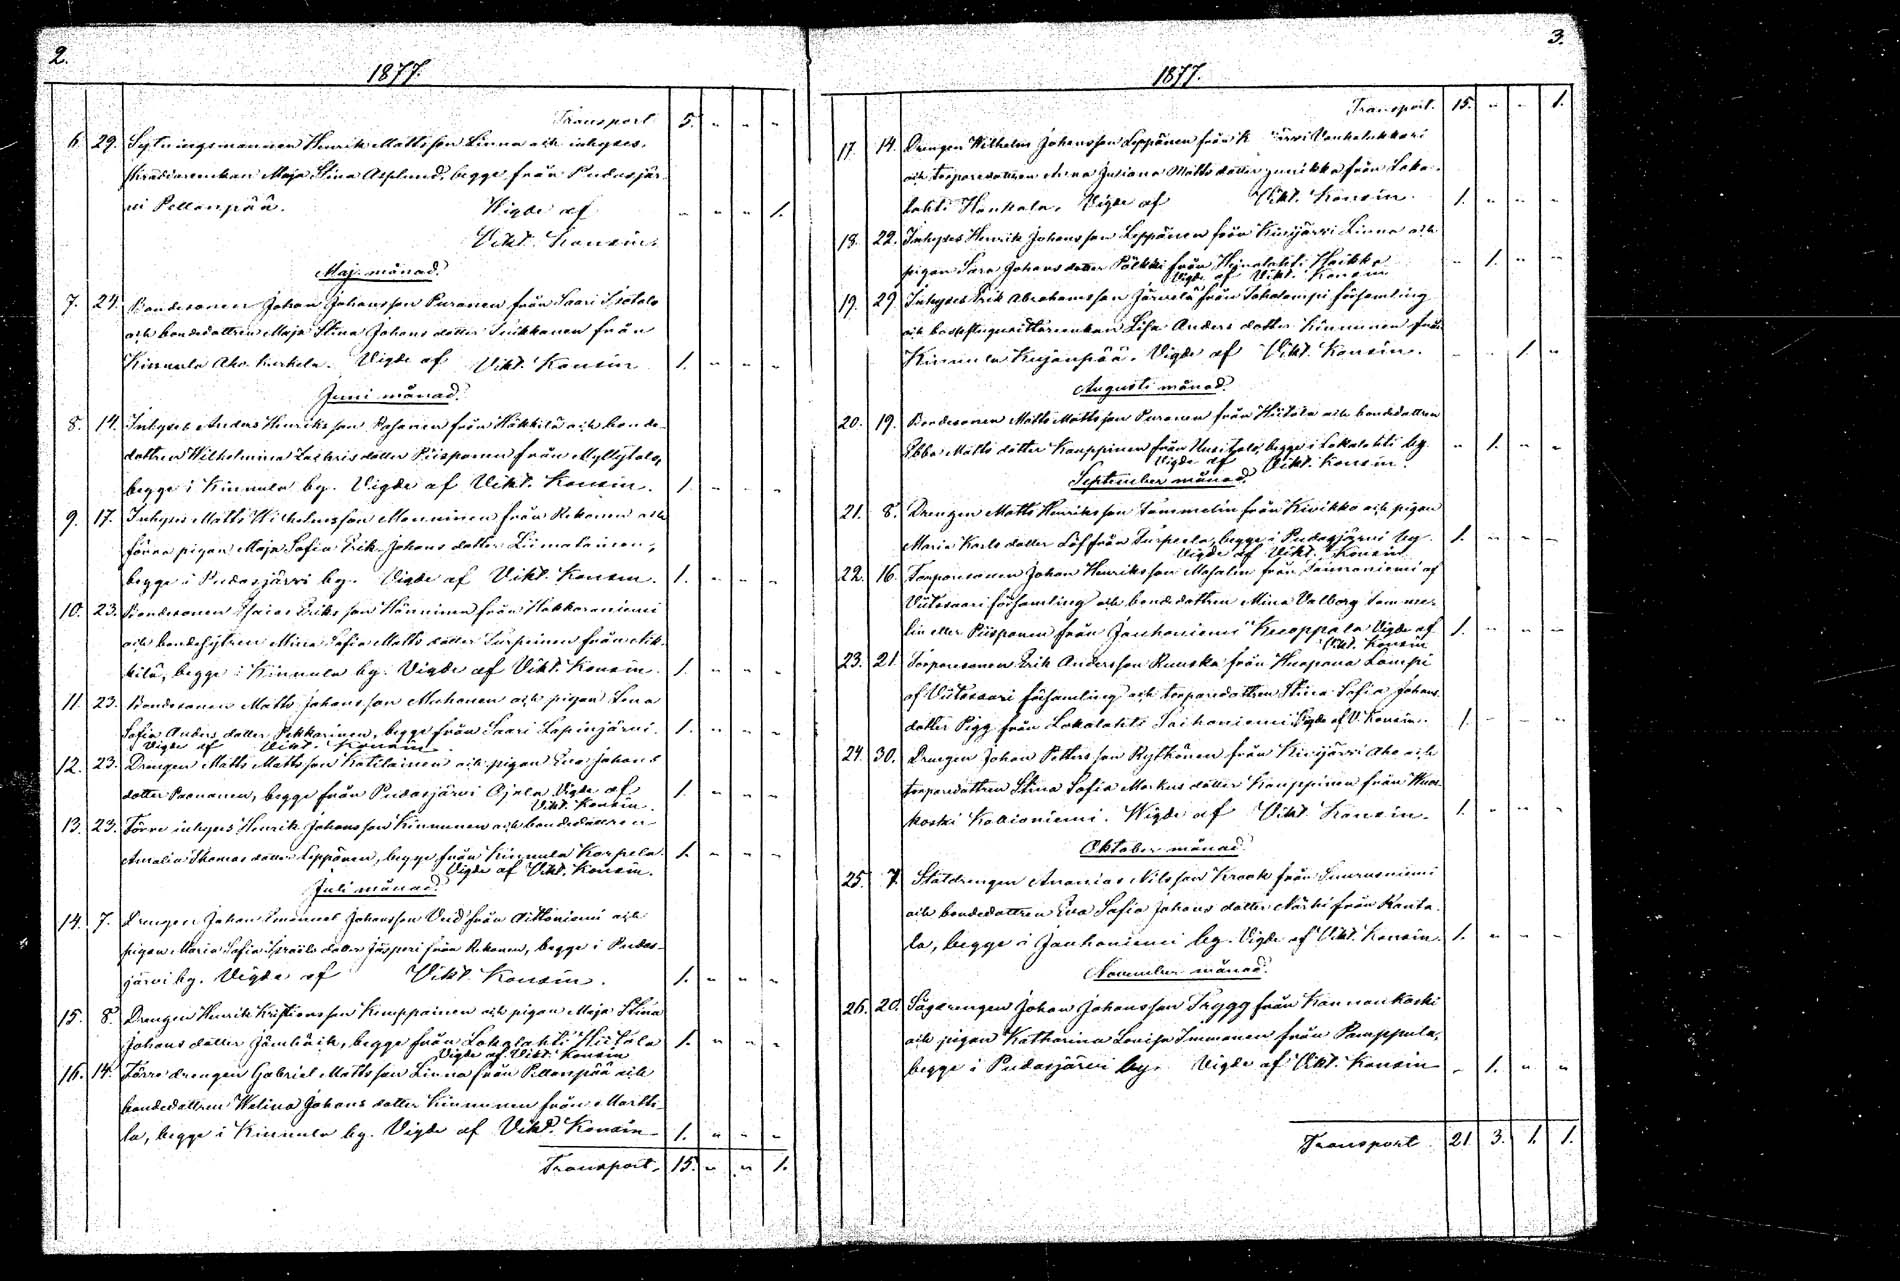 2.
1877.
Transport 5. " " "
6. 29. Sytningsmannen Henrik Mattsson Linna och inhyses.
enkan Maja Stina Asplund, begge från Pudasjär-
vi Pellonpää. Wigde af " " " 1.
Vikt. Konsin.
Maj månad.
7. 24. Bondesonen Johan Johansson Puranen från Saari Isotalo
och bondedottren Maja Stina Johans dotter Tiikkanen från
Kinnula Aho. Vigde af Vikt. Konsin 1. " " "
Juni månad.
8. 14. Inhyses Anders Henriksson Rosanen från Häkkilä och bonde-
dottren Wilhelmina Zachris dotter Piispanen från Myllytalo,
begge i Kinnula by. Vigde af Vikt. Konsin. 1. " " "
9. 17. Inhyses Matts Wilhelmsson Manninen från Rekonen och
förra pigan Maja Sofia Erik Johans dotter Liimatainen,
begge i Pudasjärvi by. Vigde af Vikt. Konsin. 1. " " "
10. 23. Bondesonen Esaias Eriksson Hänninen från Hakkaraniemi
och bondesystren Mina Sofia Matts dotter Turpeinen från
kilä, begge i Kinnula by. Vigde af Vikt. Konsin. 1. " " "
11. 23. Bondesonen Matts Johansson Muhonen och pigan Lena
Sofia Anders dotter Pekkarinen, begge från Saari Lapinjärvi. 1. " " "
Vigde af Vikt. Konsin
12. 23. Drengen Matts Mattsson Katilainen och pigan Eva Johans
dotter Paananen, begge från Pudasjärvi Ojala Vigde af 1. " " "
Vikt. Konsin.
13. 23. Förre inhyses Henrik Johansson Kinnunen och bondedottren
Amalia Thomas dotter Leppänen, begge från Kinnula Korpela. 1. " " "
Vigde af Vikt. Konsin.
Juli månad.
14. 7. Drengen Johan Emanuel Johansson Ued från Aittoniemi och
pigan Maria Sofia Israels dotter Jäsperi från Rekonen, begge i Pudas-
järvi by. Vigde af Vikt. Konsin. 1. " " "
15. 8. Drengen Henrik Kristiansson Kumppainen och pigan Maja Stina
Johans dotter Jämbäck, begge från Lokalahti Hiitola 1. " " "
Vigde af Vikt. Konsin
16. 14. Förre drengen Gabriel Mattsson Linna från Pellonpää och
bondedottren Walina Johans dotter Kinnunen från Martti-
la, begge i Kinnula by. Vigde af Vikt. Konsin 1. " " "
Transport. 15. " " 1.
3.
1877.
Transport. 15. " " 1.
17. 14. Drengen Wilhelm Johansson Leppänen från K ärvi Vanhalakkari
och torparedottren Anna Juliana Matts dotter Junikka från Loka-
lahti Hankala. Vigde af Vikt. Konsin. 1. " " "
18. 22. Inhyses Henrik Johansson Leppänen från Kivijärvi Linna och
pigan Sara Johans dotter Pölkki från Heinolahti Haikka " 1. " "
Vigde af Vikt. Konsin
19. 29. Inhyses Erik Abrahamsson Järvelä från Toholampi församling
och enkan Lisa Anders dotter Kinnunen från
Kinnula Kujanpää. Vigde af Vikt. Konsin. " " 1. "
Augusti månad.
20. 19. Bondesonen Matts Mattsson Puranen från Hiitola och bondedottren
Ebba Matts dotter Kauppinen från Uusitalo, begge i Lokalahti by. " 1. " "
Vigde af Vikt. Konsin.
September månad.
21. 8. Drengen Matts Henriksson Tammelin från Kivikko och pigan
Maria Karls dotter Löf från Turpeela, begge i Pudasjärvi by. 1. " " "
Vigde af Vikt. Konsin
22. 16. Torparesonen Johan Henriksson Masalin från Taimoniemi af
Viitasaari församling och bondedottren Mina Valborg Tamme-
lin eller Piispanen från Jauhoniemi Kauppala Vigde af 1. " " "
Vikt. Konsin
23. 21. Torparesonen Erik Andersson Ruuska från Huopana Lampi
af Viitasaari församling och torparedottren Stina Sofia Johans
dotter Pigg från Lokalahti Saihoniemi Vigde af V. Konsin. 1. " " "
24. 30. Drengen Johan Pettersson Rythönen från Kivijärvi Aho och
torparedottren Stina Sofia Markus dotter Kauppinen från Huos-
koski Kotioniemi. Wigde af Vikt. Konsin. 1. " " "
Oktober månad.
25. 7. Staldrengen Ananias Nilsson Krook från Suurusniemi
och bondedottren Eva Sofia Johans dotter Närhi från Ranta-
la, begge i Jauhoniemi by. Vigde af Vikt. Konsin. 1. " " "
November månad.
26. 20. Sågdrengen Johan Johansson Trygg från Kannonkoski
och pigan Katharina Lovisa Immonen från Pamppula,
begge i Pudasjärvi by. Vigde af Vikt. Konsin " 1. " "
Transport 21 3. 1. 1.